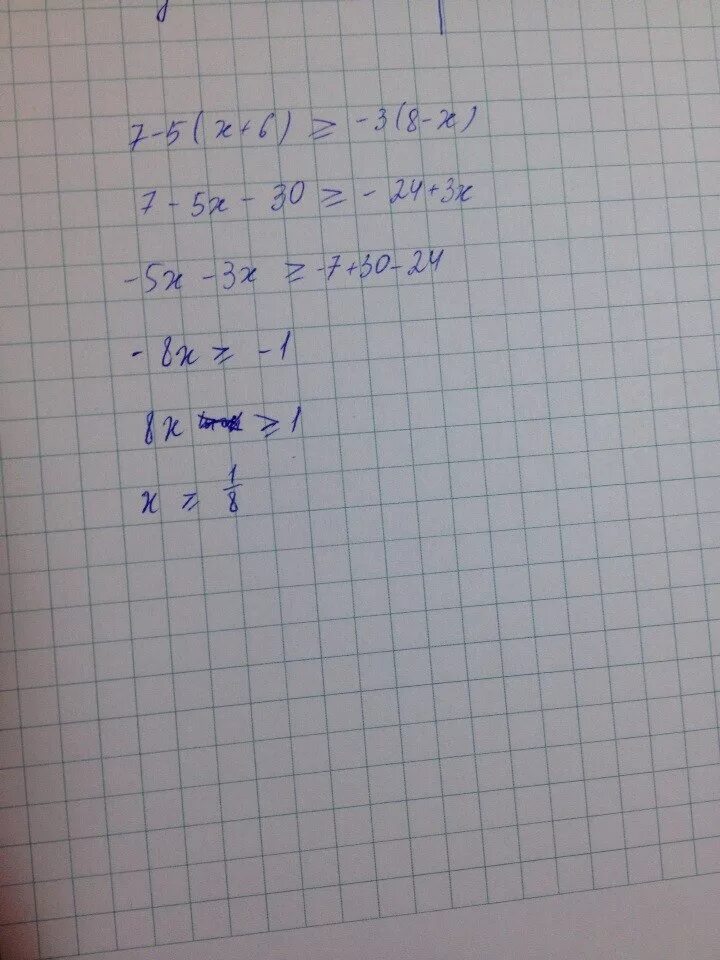 7-5(x+6) ≥ -3(8-x)
7-5x-30 ≥ -24+3x
-5x-3x ≥ -7+30-24
-8x ≥ -1
8x ≥ 1
x ≥ 1/8